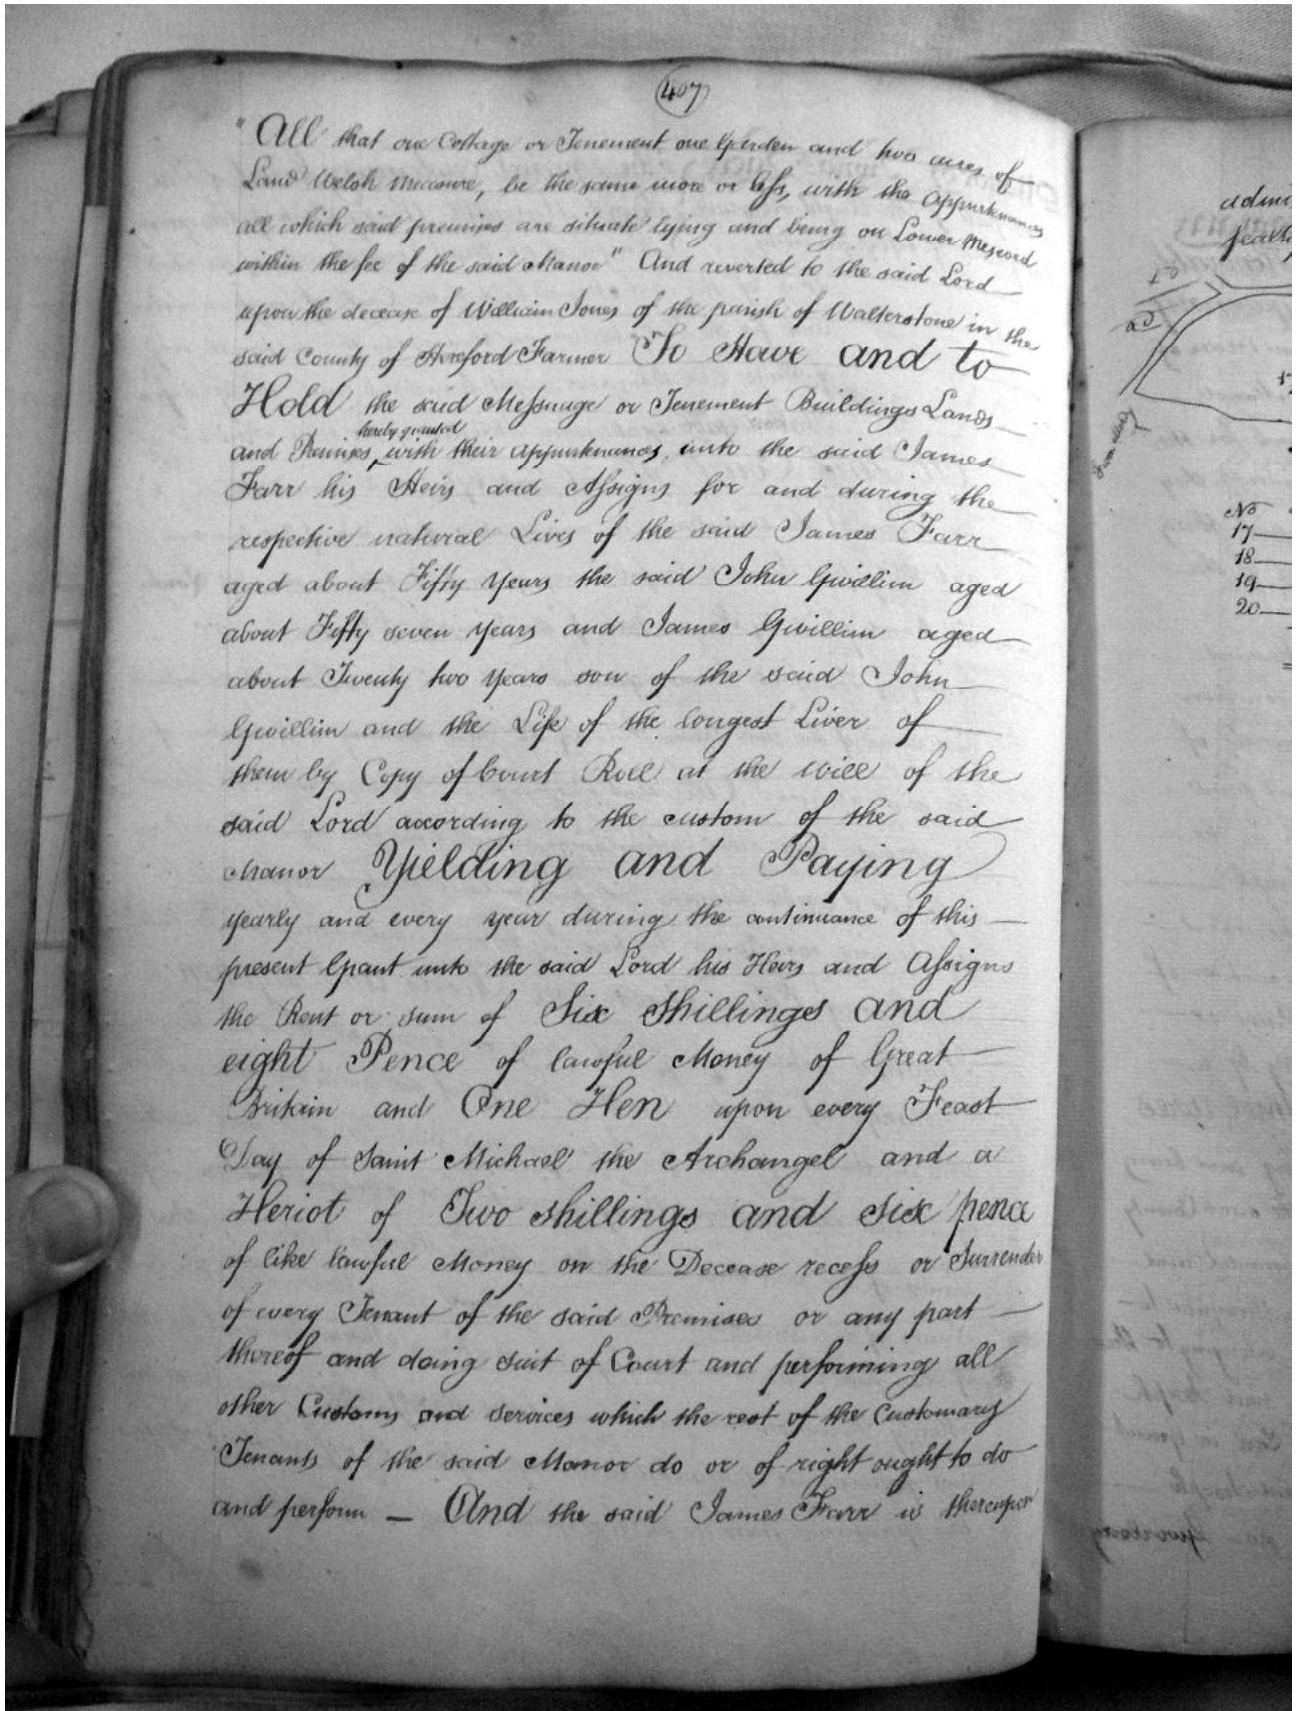 407
"All that one Cottage or Tenement one Garden and two acres of
Land Welsh Measure, be the same more or less, with the Appurtenances
all which said premises are situate lying and being on Lower Mescoed
within the fee of the said Manor" And reverted to the said Lord
upon the decease of William Jones of the parish of Walterstone in the
said County of Hereford Farmer To Have and to
Hold the said Messuage or Tenement Buildings Lands
hereby granted
and Premises with their appurtenances, unto the said James
Farr his Heirs and Assigns for and during the
respective natural Lives of the said James Farr
aged about Fifty Years the said John Gwillim aged
about Fifty seven Years and James Gwillim aged
about Twenty two Years son of the said John
Gwillim and the Life of the longest Liver of
them by Copy of Court Roll at the will of the
said Lord according to the custom of the said
Manor Yielding and Paying
yearly and every year during the continuance of this
present Grant unto the said Lord his Heirs and Assigns
the Rent or sum of Six Shillings and
eight Pence of lawful Money of Great
Britain and One Hen upon every Feast
Day of Saint Michael the Archangel and a
Heriot of Two shillings and six pence
of like lawful Money on the Decease recess or Surrender
of every Tenant of the said Premises or any part
thereof and doing suit of Court and performing all
other Customs and services which the rest of the Customary
Tenants of the said Manor do or of right ought to do
and perform — And the said James Farr is thereupon
No
17
18
19
20